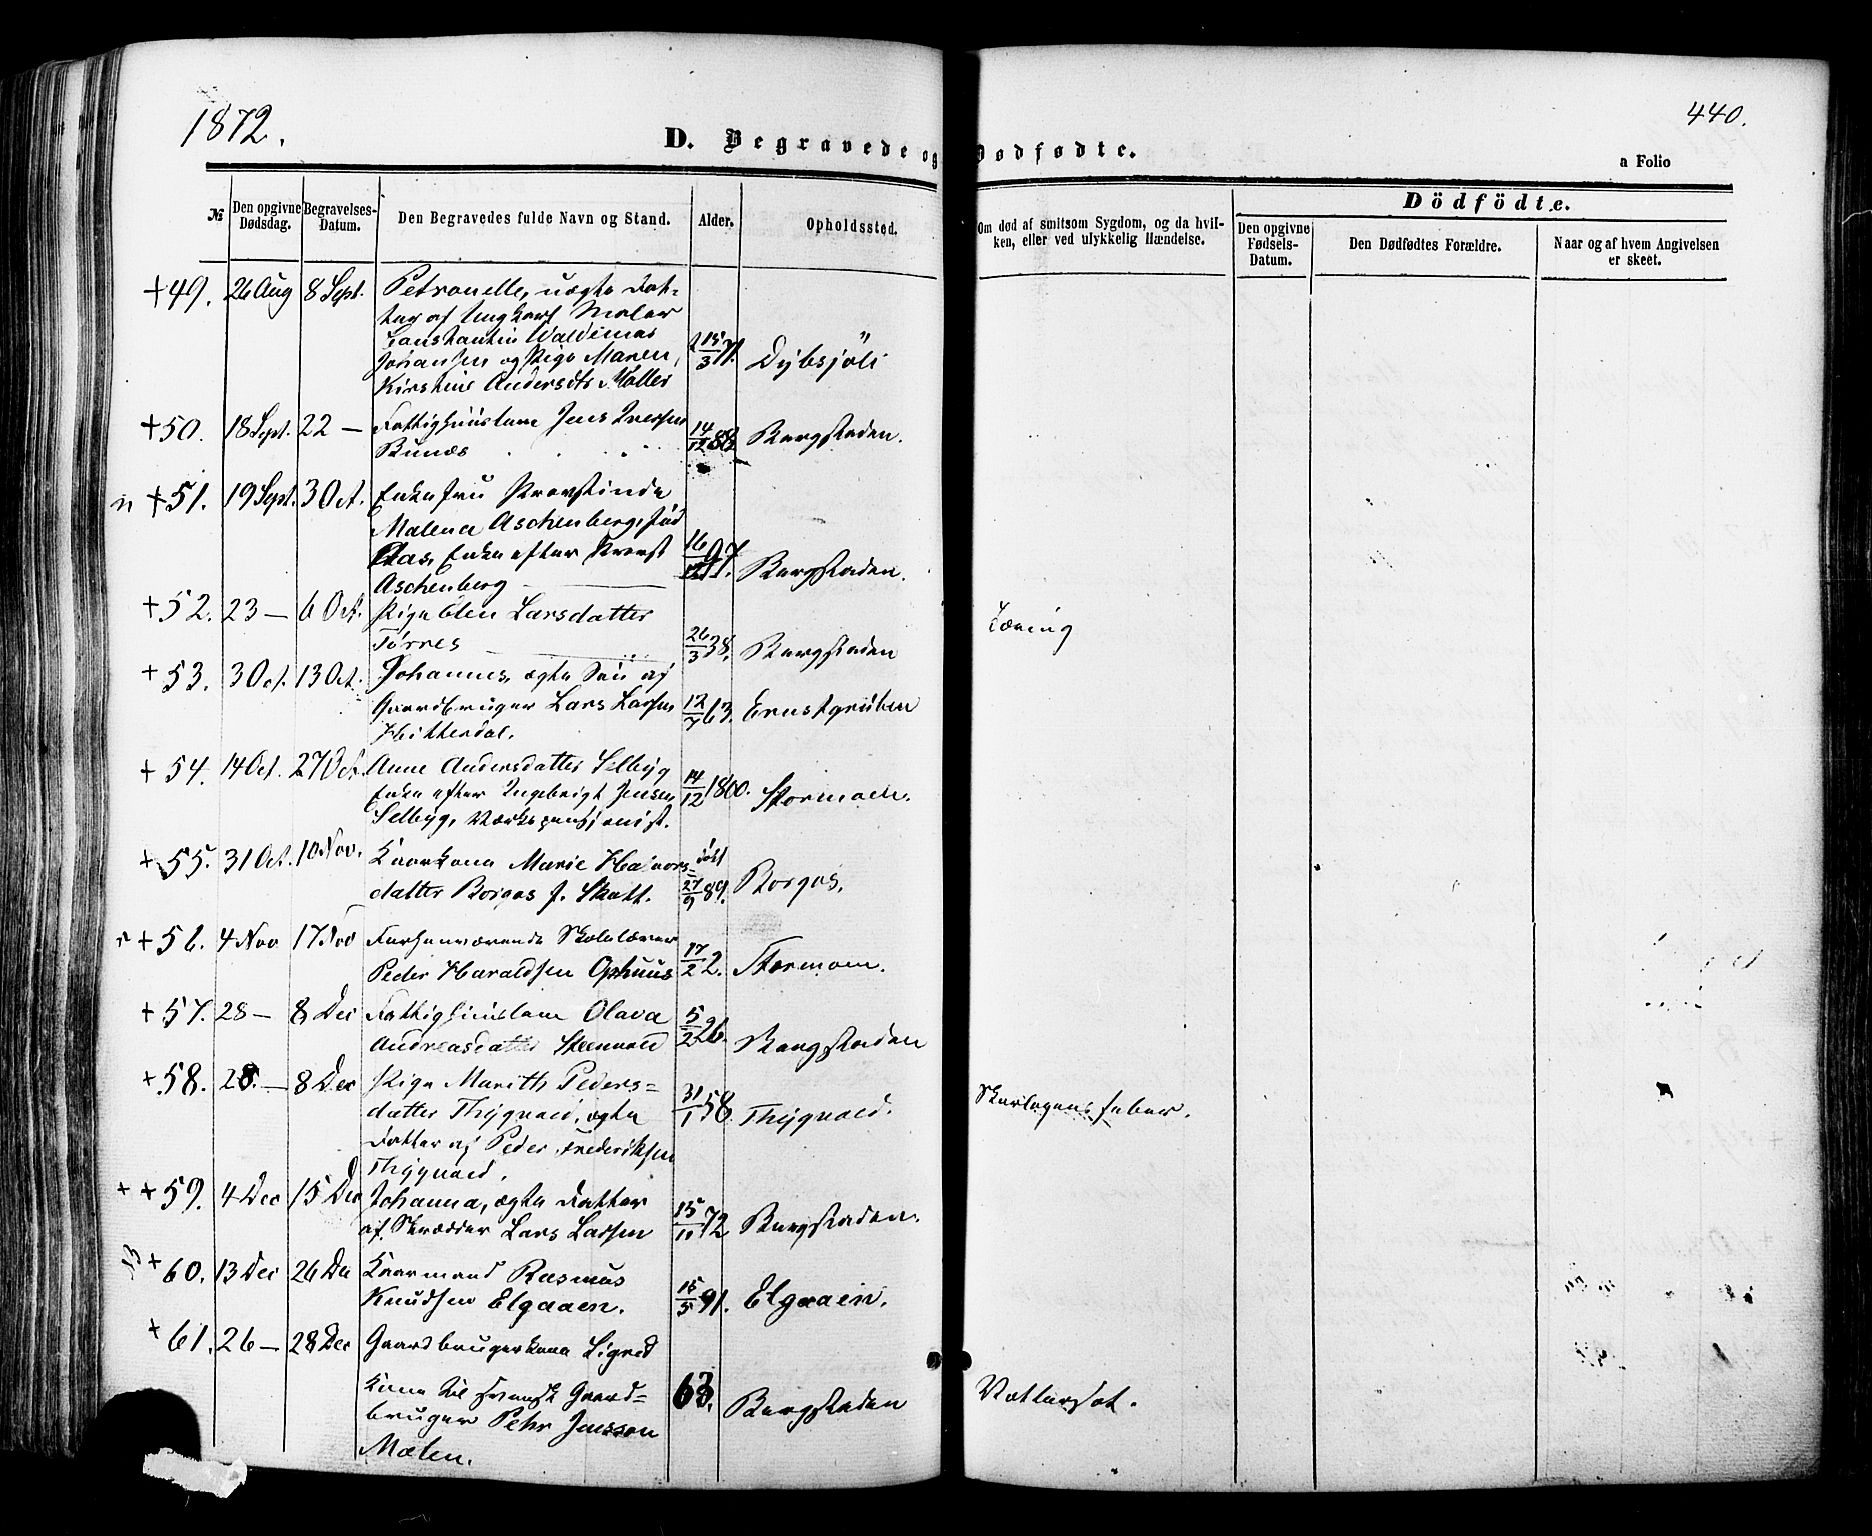 1872.
440.
D. Begravede og Dødfødte.
a Folio
№
Den opgivne Dødsdag.
Begravelses-Datum.
Den Begravedes fulde Navn og Stand.
Alder.
Opholdssted.
Om død af smitsom Sygdom, og da hvil-
ken, eller ved ulykkelig Hændelse.
Dödfödte.
Den opgivne Fødsels-Datum.
Den Dødfødtes Forældre.
Naar og af hvem Angivelsen
er skeet.
+49. 26 Aug 8 Sept. Petronelle, uægte Dat-
ter af Ungkarl Maler
Constantin Waldemar
Johansen og Pige Maren
Kirstine Andersdtr Møller 15/3 71. Dybsjöli
+50. 18 Sept. 22 — Fattighuuslem Jens Iversen
Bunæs 14/12 88 Bergstaden.
n +51. 19 Sept. 3 Oct. Enkefru Provstinde
Malena Aschenberg, fød
Aas, Enke efter Provst
Aschenberg 16/12 97. Bergstaden.
+52. 23 — 6 Oct. Pige Elen Larsdatter
Törres 26/3 38. Bergstaden Tæring
+53. 3 Oct. 13 Oct. Johannes, ægte Søn af
Gaardbruger Lars Larsen
Hitterdal. 12/7 63. Ernstgruben
+54. 14 Oct. 27 Oct. Anne Andersdatter Selbyg
Enke efter Ingebrigt Jensen
Selbyg, Værkspensjonist. 14/12 1800. Stormoen.
+55. 31 Oct. 10 Nov. Kaarkone Marie Halvors-
datter Borgos f. Skott. døbt 27/9 89. Borgos.
+56. 4 Nov 17 Nov Forhenværende Skolelærer
Peder Haraldsen Ophuus 17/2 2. Stormoen.
+57. 28 — 8 Dec Fattighuuslem Olava
Andreasdatter Steenvold 5/2 26. Bergstaden
+58. 28. — 8 Dec Pige Marith Peders-
datter Thyvold, ægte
Datter af Peder Frederiksen
Thyvold. 31/1 58. Thyvold. Skarlagensfeber.
+ +59. 4 Dec 15 Dec Johanna, ægte Datter
af Skrædder Lars Larsen 15/10 72 Bergstaden.
13 + 60. 13 Dec 26 Dec Kaarmand Rasmus
Knudsen Elgaaen. 15/5 91. Elgaaen.
+ 61. 26 — 28 Dec Gaardbrugerkone Sigred
Kone til svensk Gaard-
bruger Pehr Jensson
Mælen. 63. Bergstaden Vattersot.